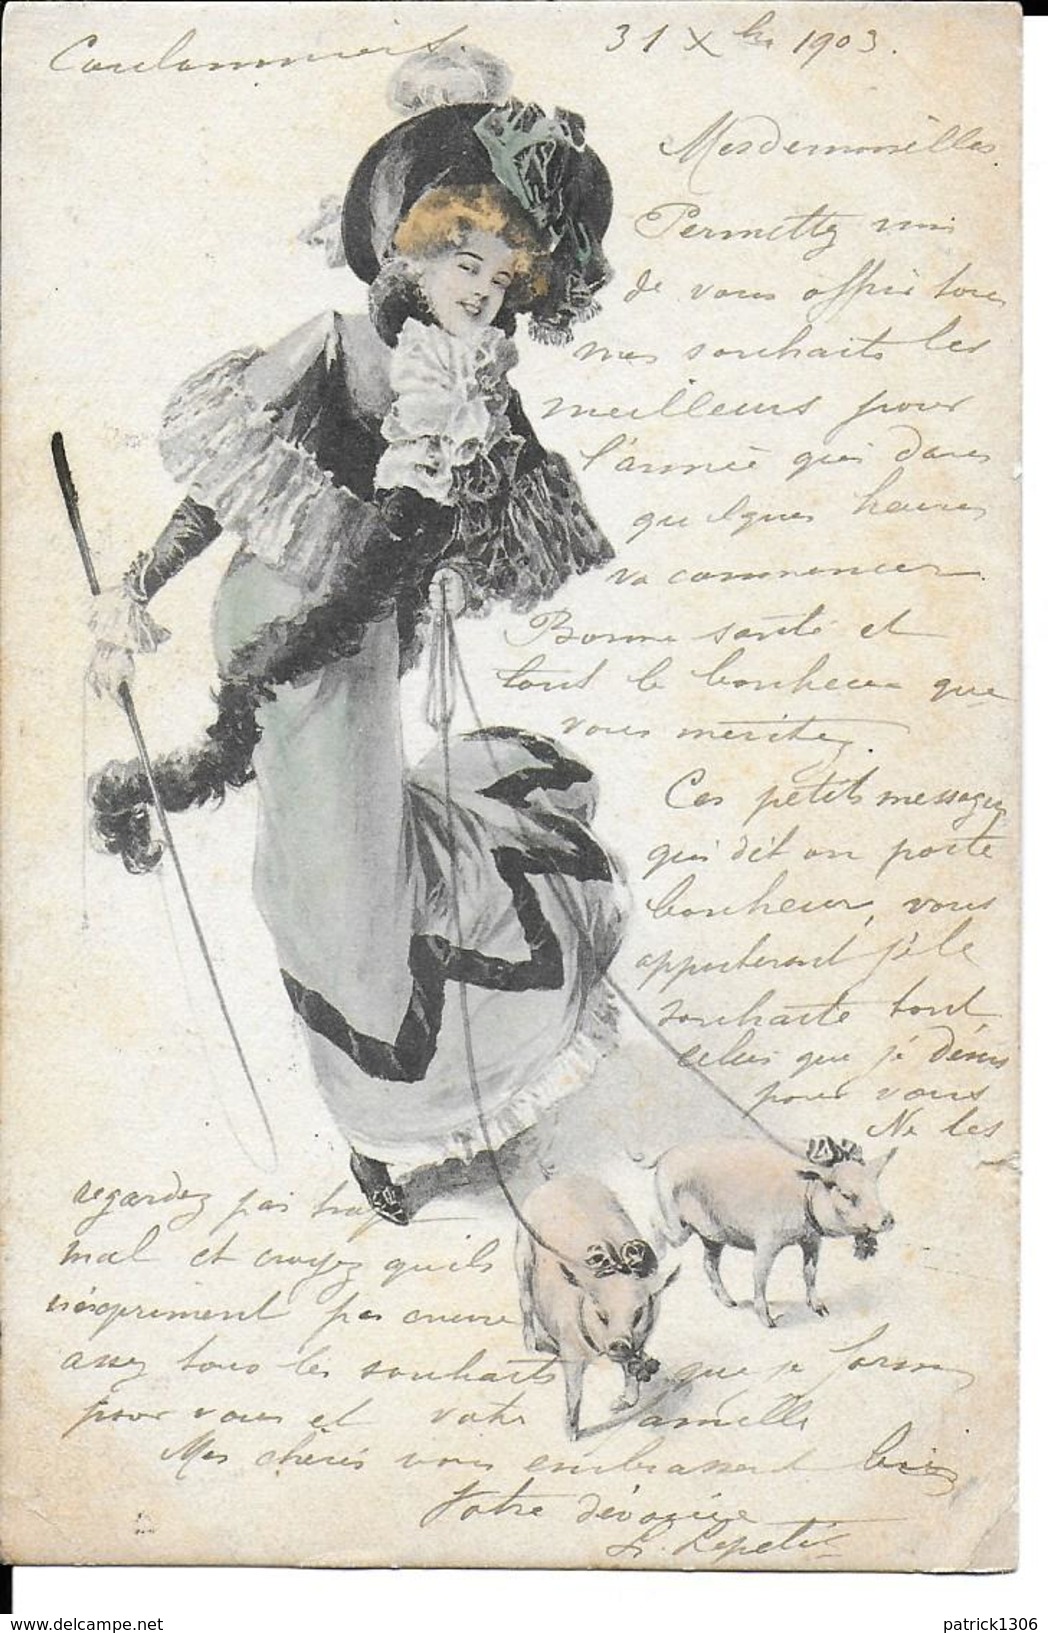 Coulommiers. 31 Xbre 1903.
Mesdemoiselles
Permettez moi
de vous offrir tous
mes souhaits les
meilleurs pour
l'année qui dans
quelques heures
va commencer.
Bonne santé et
tout le bonheur que
vous meritez.
Ces petits messagers
qui dit on porte
bonheur, vous
apporteront je le
souhaite tout
celui que je désire
pour vous
Ne les
regardez pas trop
mal et croyez quils
n'expriment pas encore
assez tous les souhaits que je forme
pour vous et votre famille
Mes chéris vous embrassent bien
Votre dévouée
L. Lepetit
www.delcampe.net patrick1306